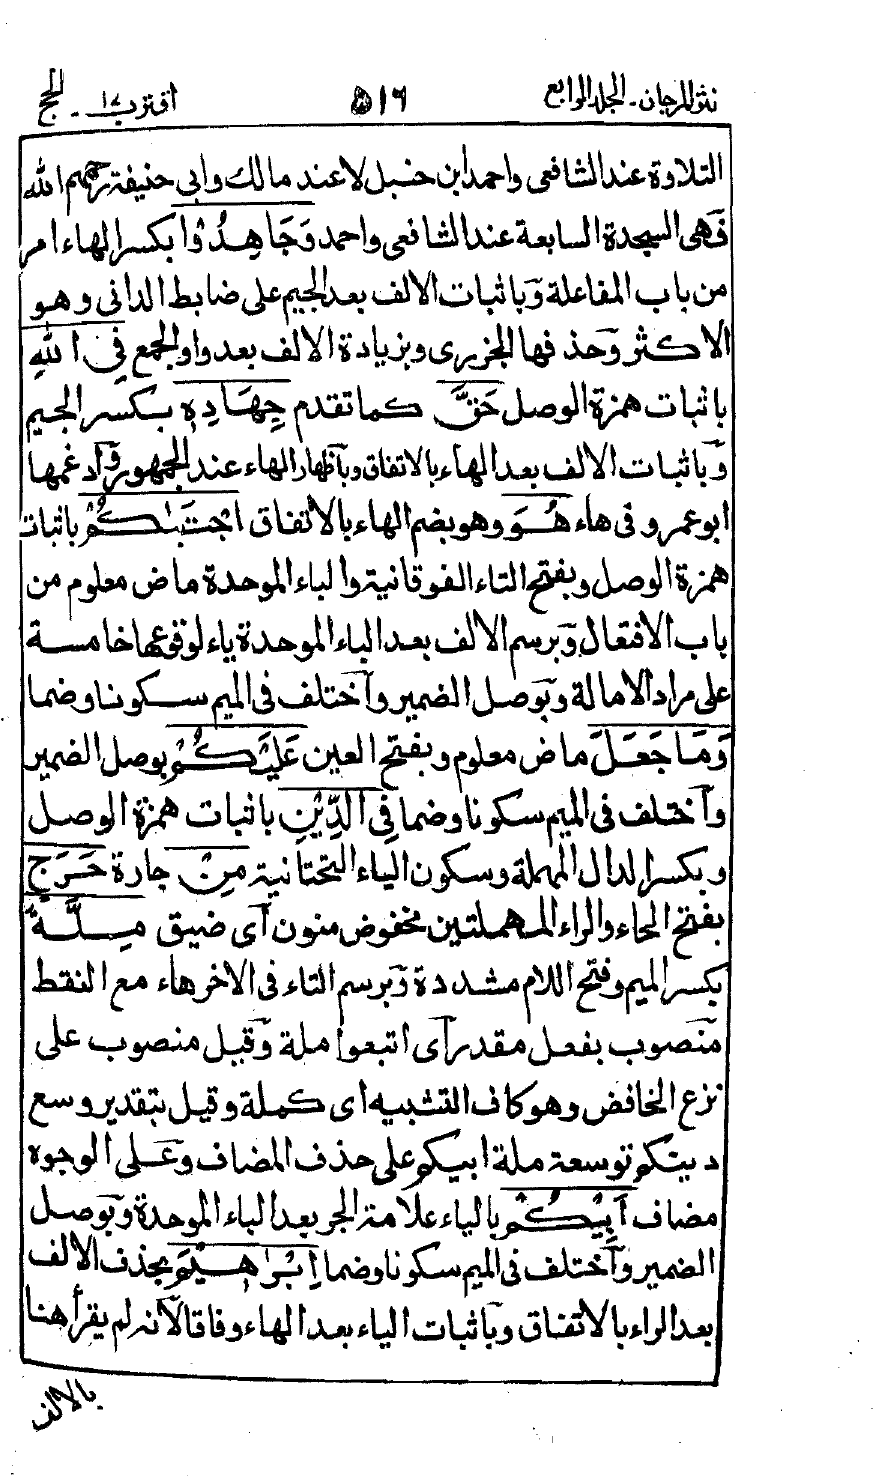 نثر المرجان - الجلد الرابع ٥١٦ اقترب ١٧ - الحج
التلاوة عند الشافعى واحمد ابن حنبل لا عند مالك وابى حنيفة رحمهم الله
فهى السجدة السابعة عند الشافعى واحمد وَجَاهِدُوْا بكسر الهاء امر
من باب المفاعلة وباثبات الالف بعد الجيم على ضابط الدانى وهو
الاكثر وحذفها الجزرى وبزيادة الالف بعد واو الجمع فِى اللهِ
باثبات همزة الوصل حَقَّ كما تقدم جِهَادِهٖ بكسر الجيم
وباثبات الالف بعد الهاء بالاتفاق وباظهار الهاء عند الجمهور وادغمها
ابو عمرو فى هاء هُوَ وهو بضم الهاء بالاتفاق اجْتَبٰىكُمْ باثبات
همزة الوصل وبفتح التاء الفوقانية والباء الموحدة ماض معلوم من
باب الافتعال وبرسم الالف بعد الباء الموحدة ياء لوقوعها خامسة
على مراد الامالة وبوصل الضمير واختلف فى الميم سكونا وضما
وَمَا جَعَلَ ماض معلوم وبفتح العين عَلَيْكُمْ بوصل الضمير
واختلف فى الميم سكونا وضما فِى الدِّيْنِ باثبات همزة الوصل
وبكسر الدال المهملة وسكون الياء التحتانية مِنْ جارة حَرَجٍ
بفتح الحاء والراء المهملتين مخفوض منون اى ضيق مِلَّةَ
بكسر الميم وفتح اللام مشددة وبرسم التاء فى الاخر هاء مع النقط
منصوب بفعل مقدر اى اتبعوا ملة وقيل منصوب على
نزع الخافض وهو كاف التشبيه اى كملة وقيل بتقدير وسع
دينكم توسعة ملة ابيكم على حذف المضاف وعلى الوجوه
مضاف اَبِيْكُمْ بالياء علامة الجر بعد الباء الموحدة وبوصل
الضمير واختلف فى الميم سكونا وضما اِبْرٰهِيْمَ بحذف الالف
بعد الراء بالاتفاق وباثبات الياء بعد الهاء وفاقا لانه لم يقرأ هنا
بالالف